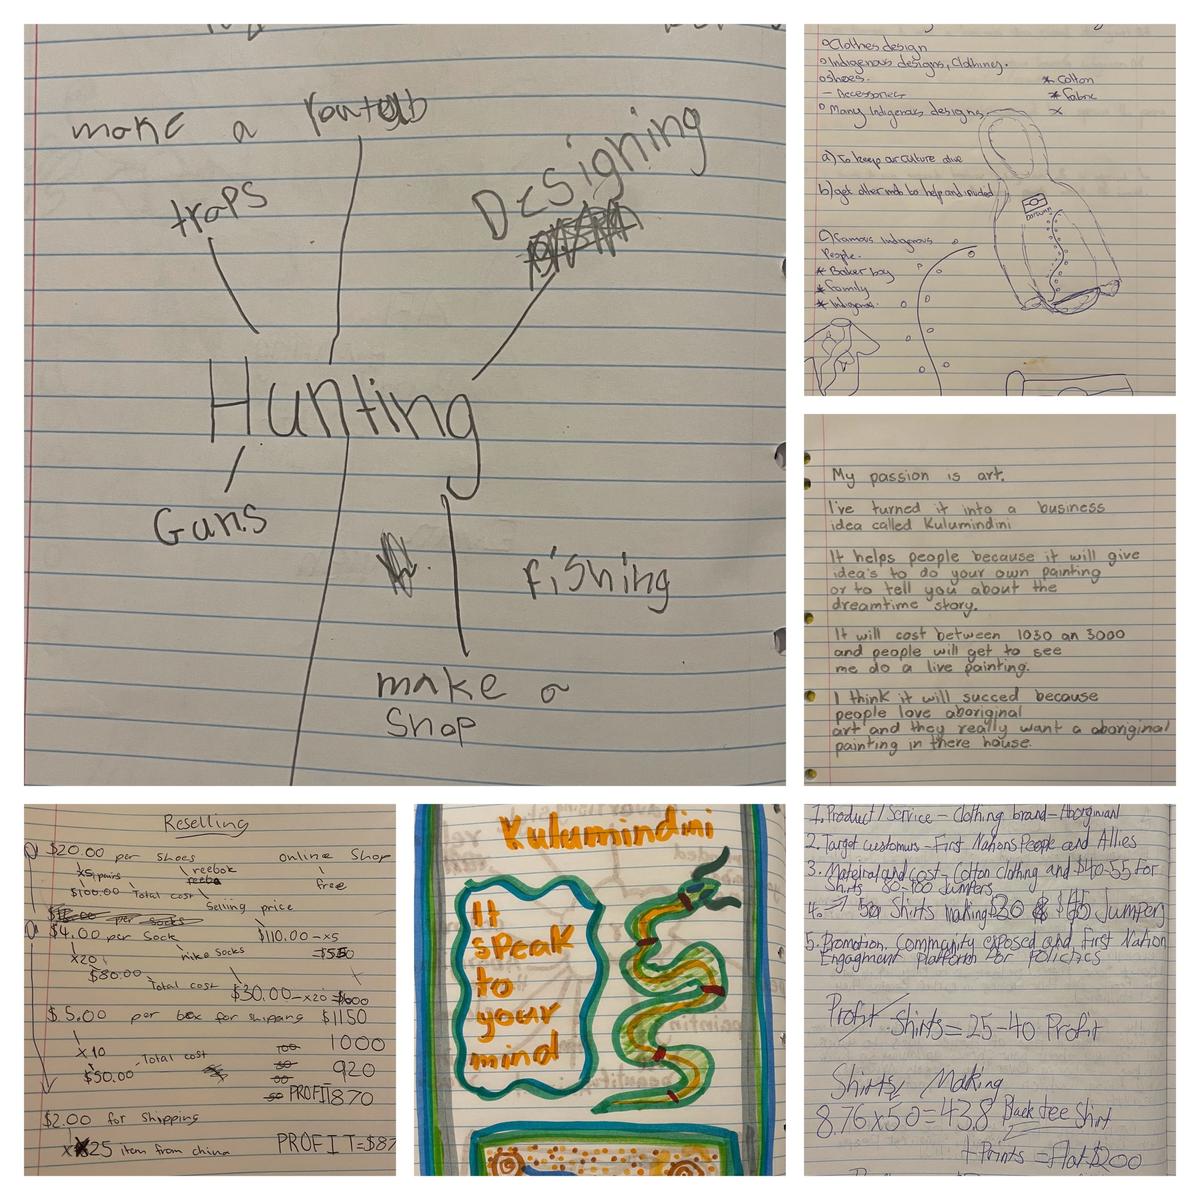 make a
traps
Designing
Hunting
Guns
fishing
make a
shop
Clothes design
Indigenous designs, Clothing.
Shoes.
- Accessories
Many Indigenous designs
* Cotton
* Fabric
a) to keep our culture alive
b) get other mob to help and
c) Famous Indigenous
People.
* Baker boy
* Family
* Indigenous.
My passion is art.
I've turned it into a business
idea called Kulumindini
It helps people because it will give
idea's to do your own painting
or to tell you about the
dreamtime story.
It will cost between 1030 an 3000
and people will get to see
me do a live painting.
I think it will succed because
people love aboriginal
art and they really want a aboriginal
painting in there house.
Reselling
$20.00 per shoes online Shop
x5 pairs reebok free
$100.00 Total cost
Selling price
$4.00 per Sock nike socks $110.00-x5
x20 $550
$80.00 Total cost $30.00-x20 $600
$5.00 per box for shipping $1150
x10 Total cost 1000
$50.00 920
PROFIT 870
$2.00 for shipping
x25 item from china PROFIT=$87
Kulumindini
It
speak
to
your
mind
1. Product/Service - Clothing brand - Aboriginial
2. Target customers - First Nations People and Allies
3. Material and cost - Cotton clothing and $40-55 for
Shirts 80-100 Jumpers
4. → 50 Shirts making $30 $45 Jumpers
5. Promotion, Community exposed and First Nation
Engagment Platform for Policies
Profit Shirts = 25-40 Profit
Shirts Making
8.76x50=438 Black tee Shirt
+ Prints = Flat $200